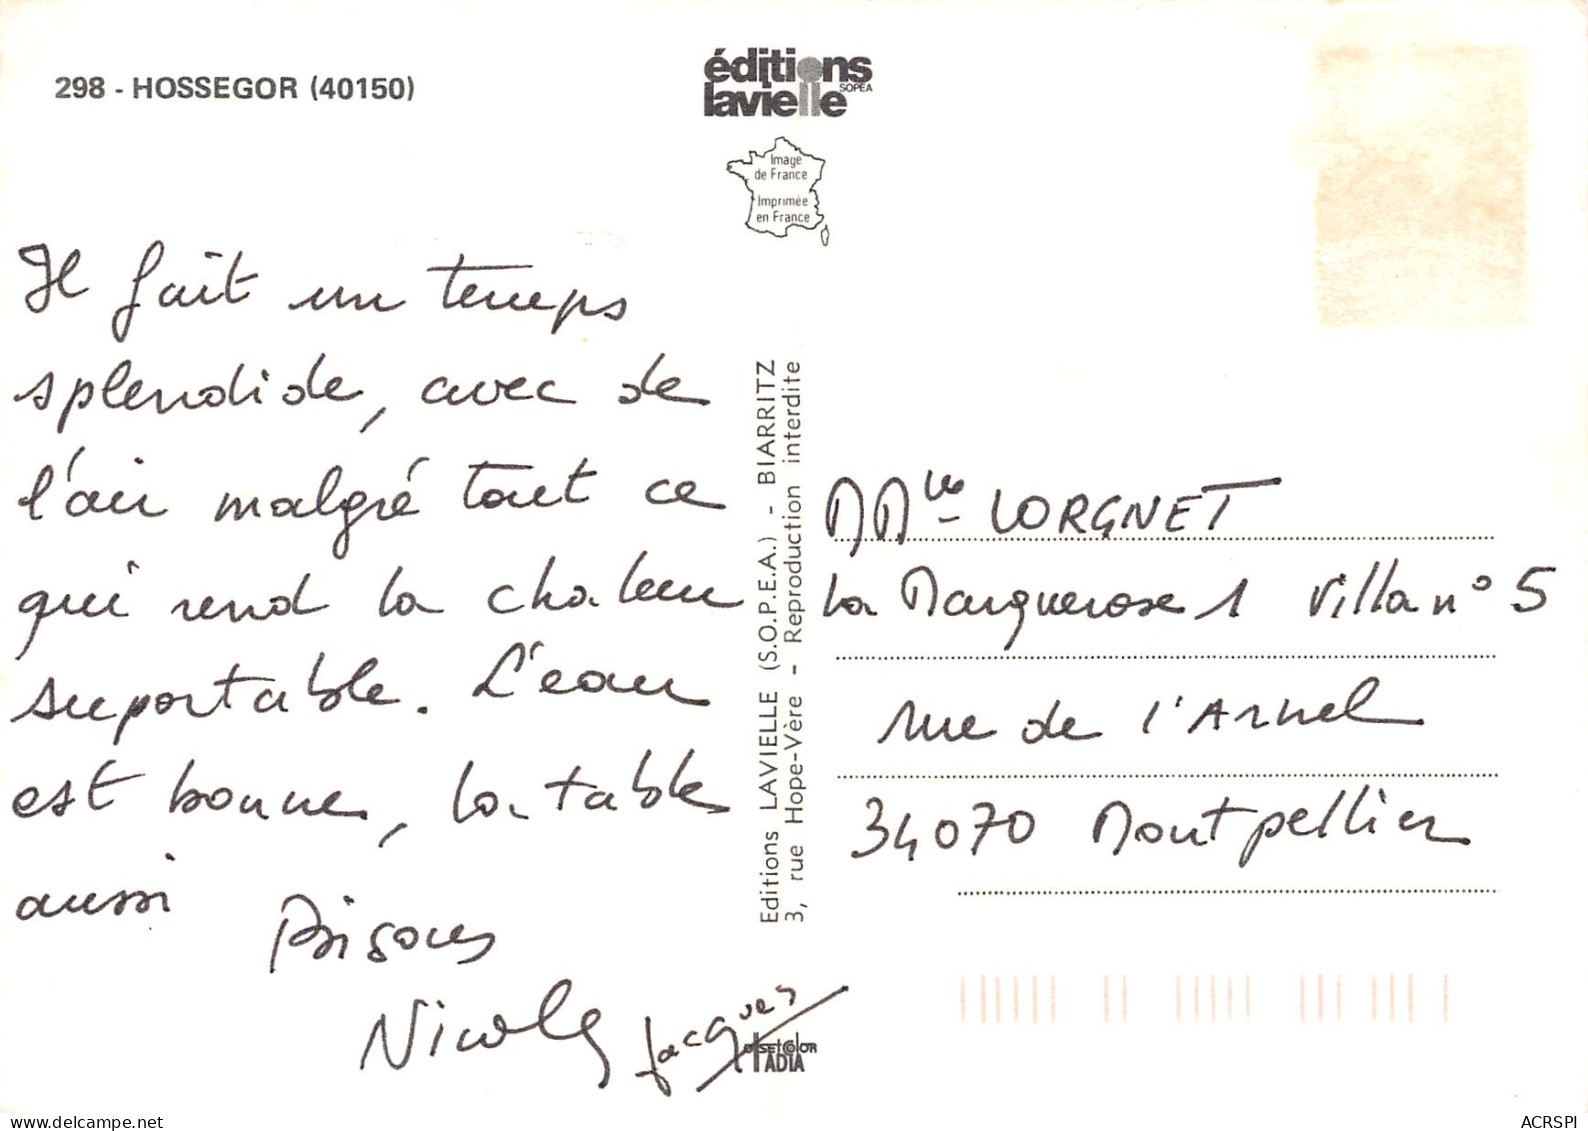 298 - HOSSEGOR (40150)
éditions
lavielle
SOPEA
Image
de France
Imprimée
en France
Il fait un temps
splendide, avec de
l'air malgré tout ce
qui rend la chaleur
supportable. L'eau
est bonne, la table
aussi
Bisous
Nicole Jacques
Editions LAVIELLE (S.O.P.E.A.) - BIARRITZ
3, rue Hope-Vère - Reproduction interdite
LORGNET
La Marguerose 1 Villa n° 5
rue de l'Arnel
34070 Montpellier
offset color
ADIA
ACRSPI